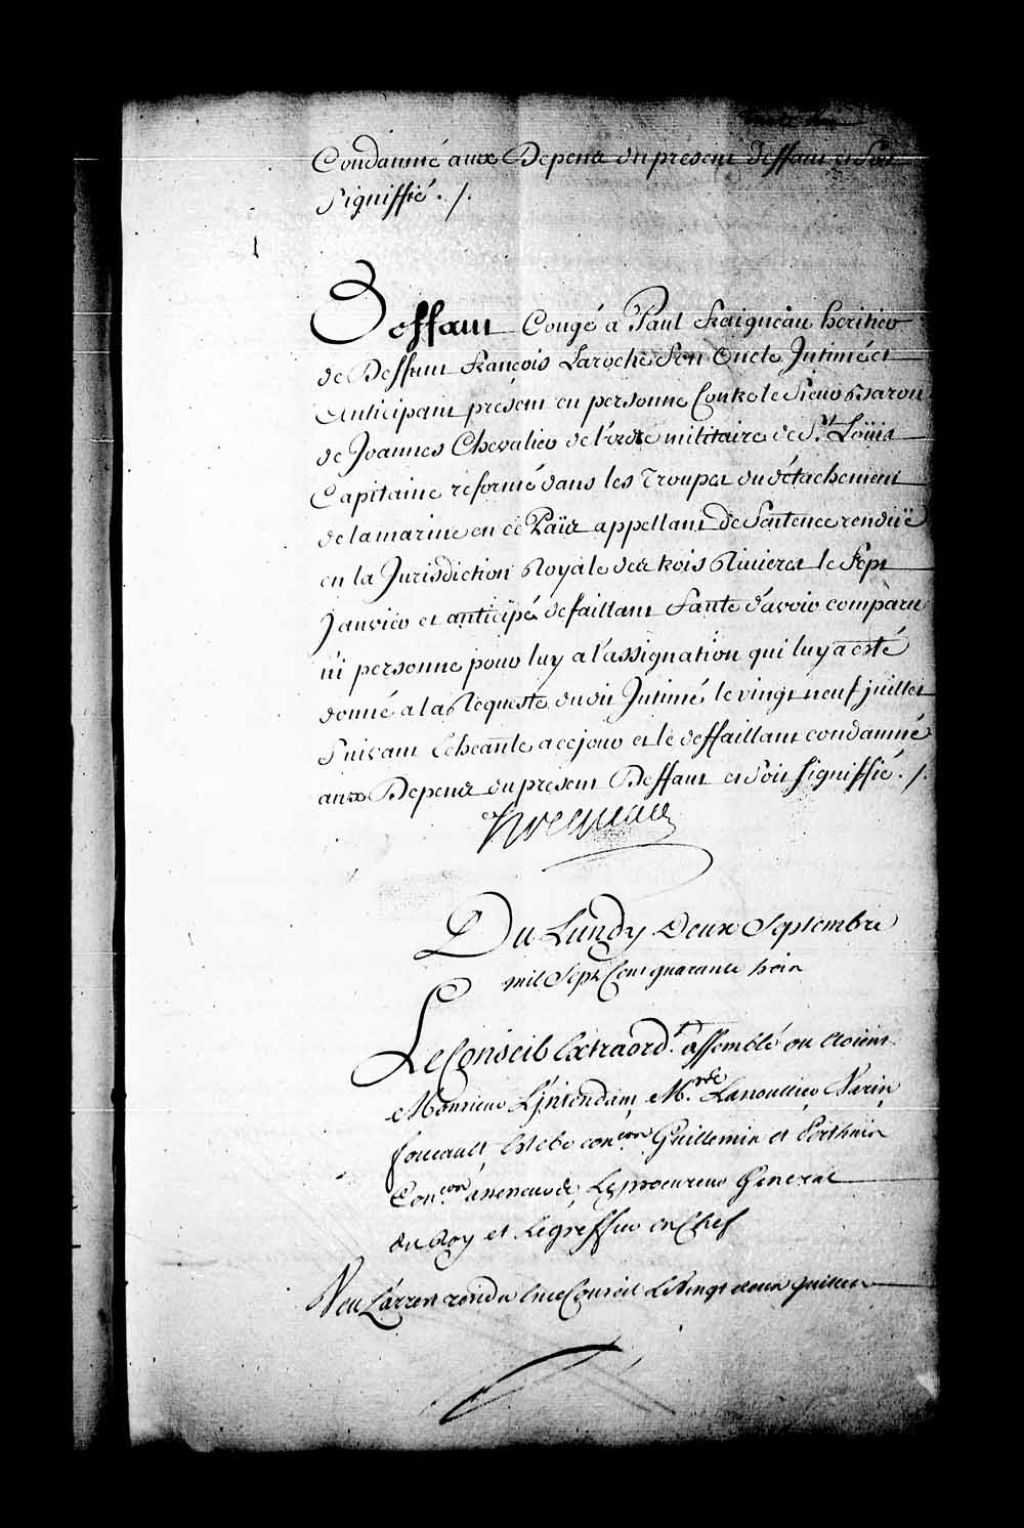 Condamné aux Depens du present deffaut et Soit
Signiffié ./.
Deffaut Congé a Paul Fraigneau heritier
de Deffunt François Laroche Son Oncle Intimé et
Anticipant présent en personne Contre le Sieur Baron
de Joannes Chevalier de l'ordre militaire de St. Loüis
Capitaine réformé dans les Troupes du détachement
de la marine en ce Païs appellant de Sentence renduë
en la Jurisdiction Royale des trois Rivieres le Sept
Janvier et anticipé defaillant Faute d'avoir comparu
ni personne pour luy a l'assignation qui luy a esté
donné a la Requeste dudit Intimé le vingt neuf juillet
Suivant Echeante a ce jour et le deffaillant condamné
aux Depens du present Deffaut et Soit Signiffié ./.
Du Lundy Deux Septembre
mil Sept Cent quarante trois
Le Conseil Extraord.t assemblé ou étoient
Monsieur L'intendant Mrs. de Lanoullier Varin
foucault Estebe con.ers Guillemin et
Con.ers assesseurs Le procureur General
du Roy et Le greffier en Chef
Veu L'arrest rendu en ce Conseil Le Vingt deux Juillet